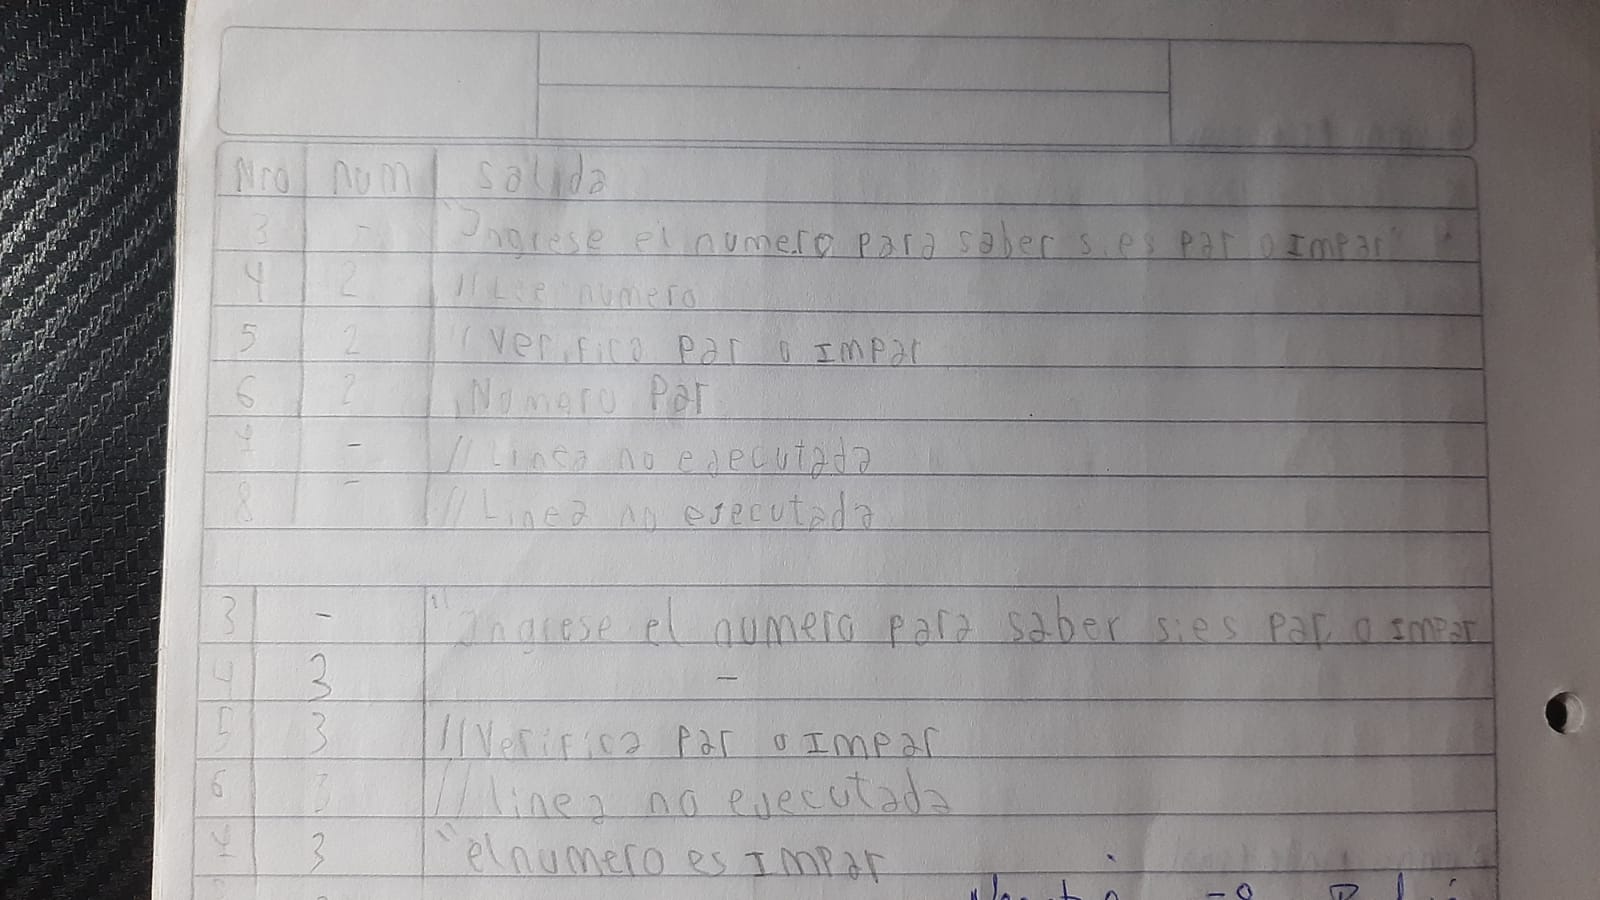 Nro num salida
3 - "Ingrese el numero para saber si es par o Impar"
4 2 // Lee numero
5 2 // Verifico Par o Impar
6 2 Numero Par
7 - // Linea no ejecutada
8 - // Linea no ejecutada
3 - "Ingrese el numero para saber si es par o impar
4 3 -
5 3 // Verifica Par o Impar
6 3 // linea no ejecutada
7 3 "el numero es Impar